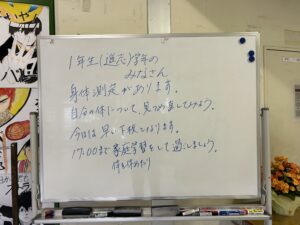 1年生(進応)学年の
みなさん
身体測定があります。
自分の体について、見つめ直してみよう。
今日は早い下校となります。
17:00まで家庭学習をして過ごしましょう。
体を休めたり